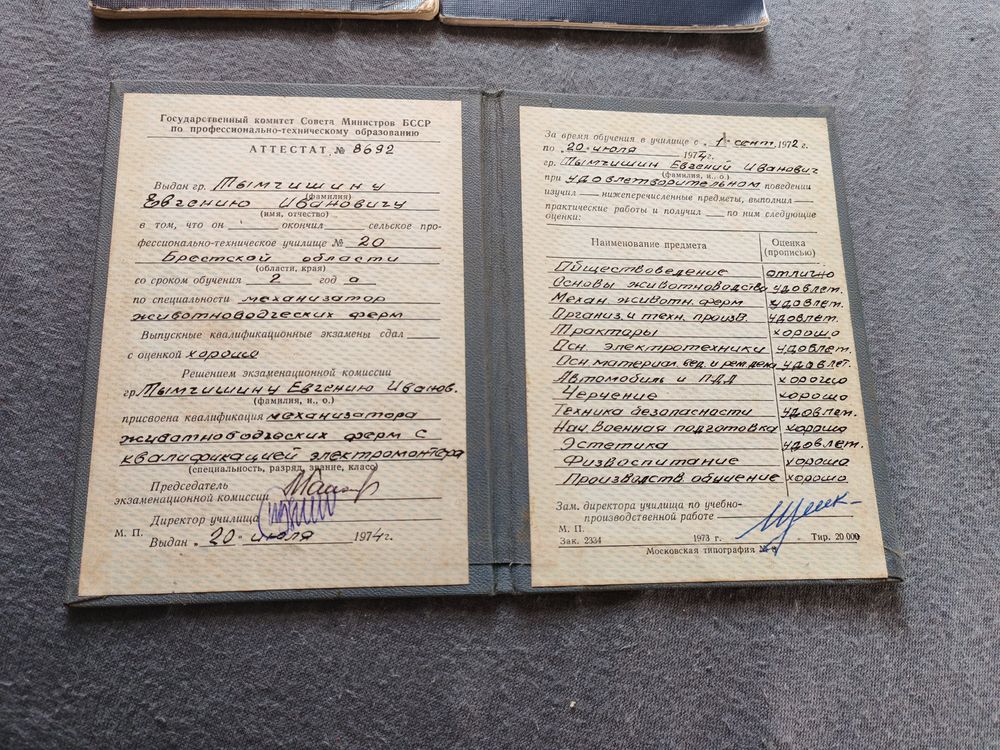 Государственный комитет Совета Министров БССР
по профессионально-техническому образованию
АТТЕСТАТ № 8692
Выдан гр. Тымчишину
(фамилия)
Евгению Ивановичу
(имя, отчество)
в том, что он окончил сельское про-
фессионально-техническое училище № 20
Брестской области
(области, края)
со сроком обучения 2 год а
по специальности механизатор
животноводческих ферм
Выпускные квалификационные экзамены сдал
с оценкой хорошо
Решением экзаменационной комиссии
гр. Тымчишину Евгению Иванов.
(фамилия, и., о.)
присвоена квалификация механизатора
животноводческих ферм с
квалификацией электромонтера
(специальность, разряд, звание, класс)
Председатель
экзаменационной комиссии
Директор училища
М. П.
Выдан „20" июля 1974 г.
За время обучения в училище с „1" сент. 1972 г.
по 20 июля 1974 г.
гр. Тымчишин Евгений Иванович
(фамилия, и., о.)
при удовлетворительном поведении
изучил нижеперечисленные предметы, выполнил
практические работы и получил по ним следующие
оценки:
Наименование предмета Оценка
(прописью)
Обществоведение отлично
Основы животноводства удовлет.
Механ. животн. ферм удовлет.
Организ. и техн. произв. удовлет.
Трактары хорошо
Осн. электротехники удовлет.
Осн. материал. вед. и рем. дела удовлет.
Автомобиль и ПДД хорошо
Черчение хорошо
Техника безопасности удовлет.
Нач военная подготовка хорошо
Эстетика удовлет.
Физвоспитание хорошо
Производств. обучение хорошо
Зам. директора училища по учебно-
производственной работе
М. П.
Зак. 2334 1973 г. Тир. 20 000
Московская типография